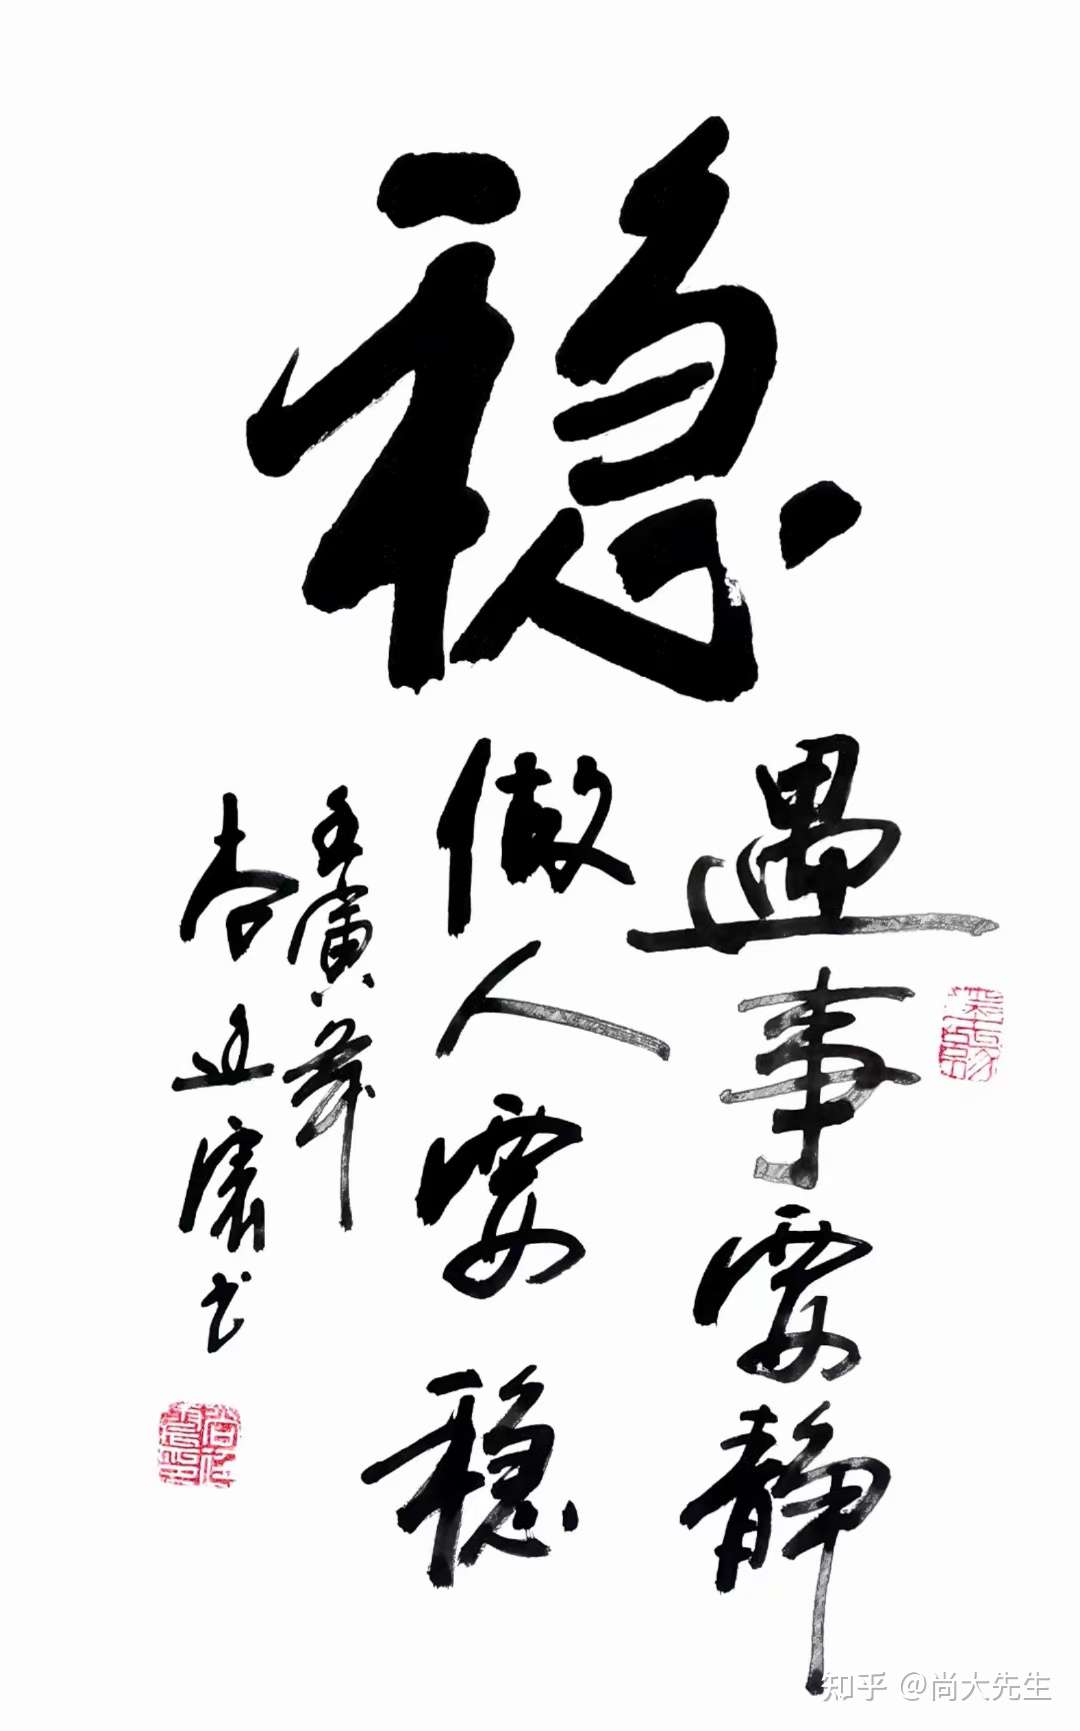 稳
遇事要静
做人要稳
壬寅年
书
知乎 @尚大先生